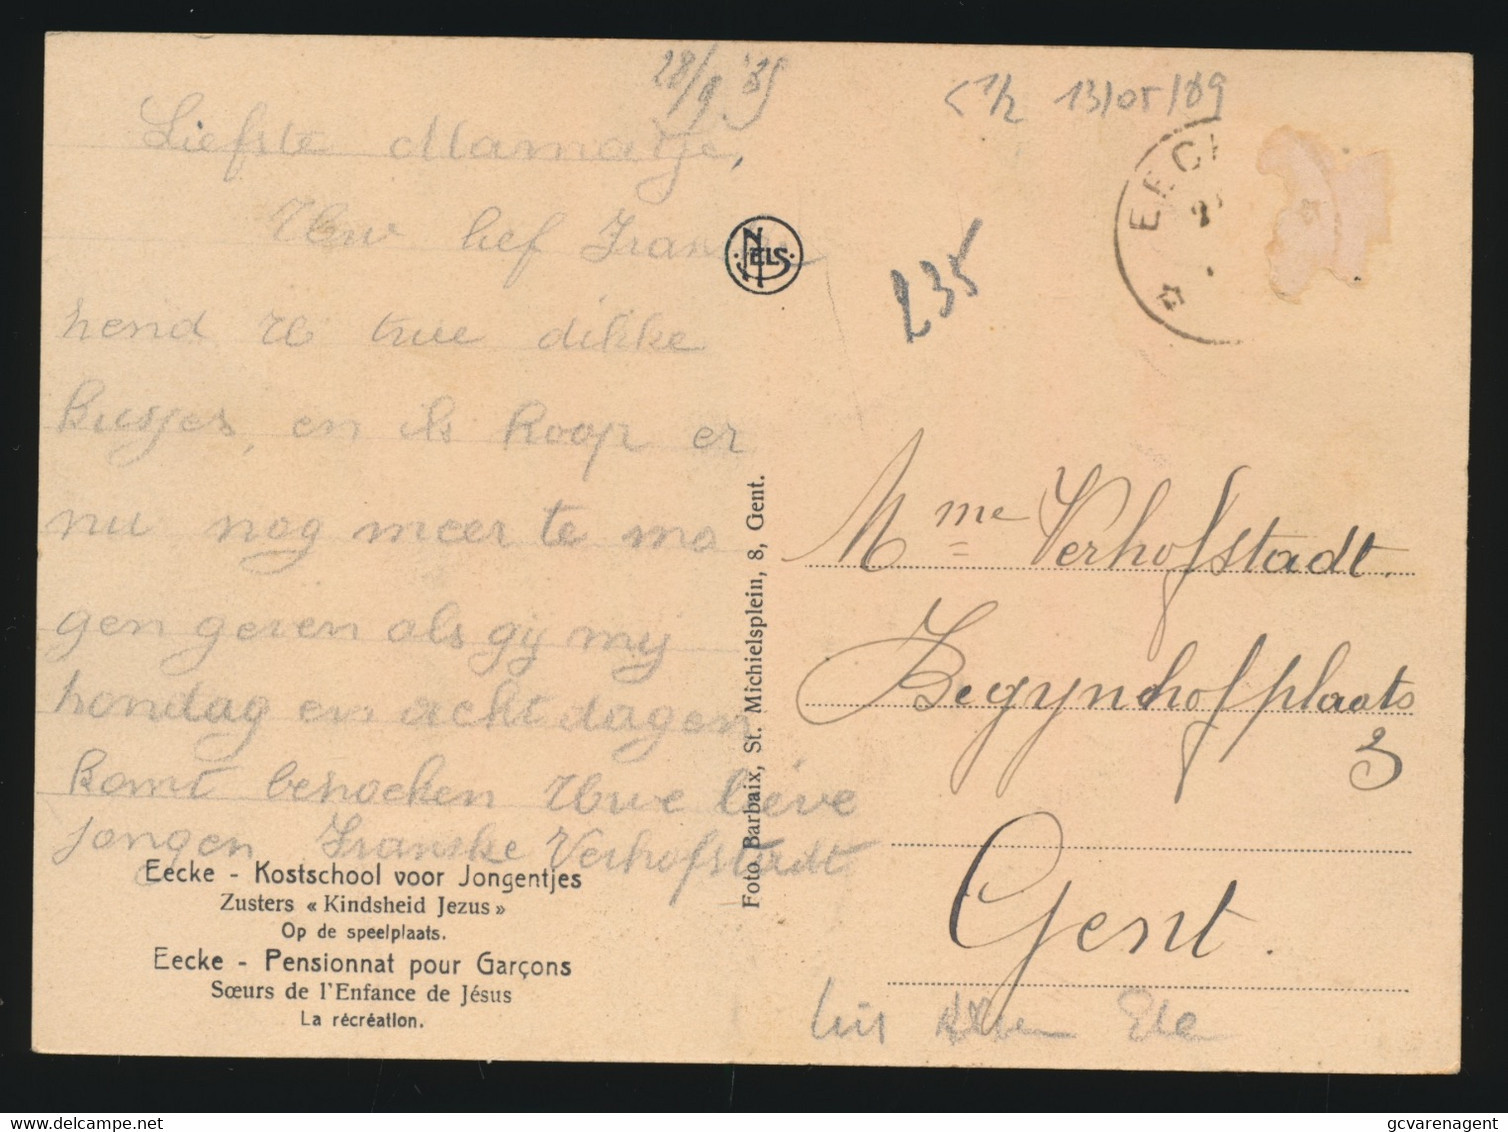 28/9 '35
13/05/89
Liefste Mamatje,
Uw lief Franske
zend U twe dikke
kusjes, en ik hoop er
nu nog meer te mo
gen geven als gij mij
zondag en acht dagen
komt bezoeken Uwe lieve
jongen Franske Verhofstadt
Eecke - Kostschool voor Jongentjes
Zusters « Kindsheid Jezus »
Op de speelplaats.
Eecke - Pensionnat pour Garçons
Sœurs de l'Enfance de Jésus
La récréation.
NELS
Foto Barbaix, St. Michielsplein, 8, Gent.
EECK
235
Mme Verhofstadt.
Begynhofplaats
3
Gent.
gcvarenagent